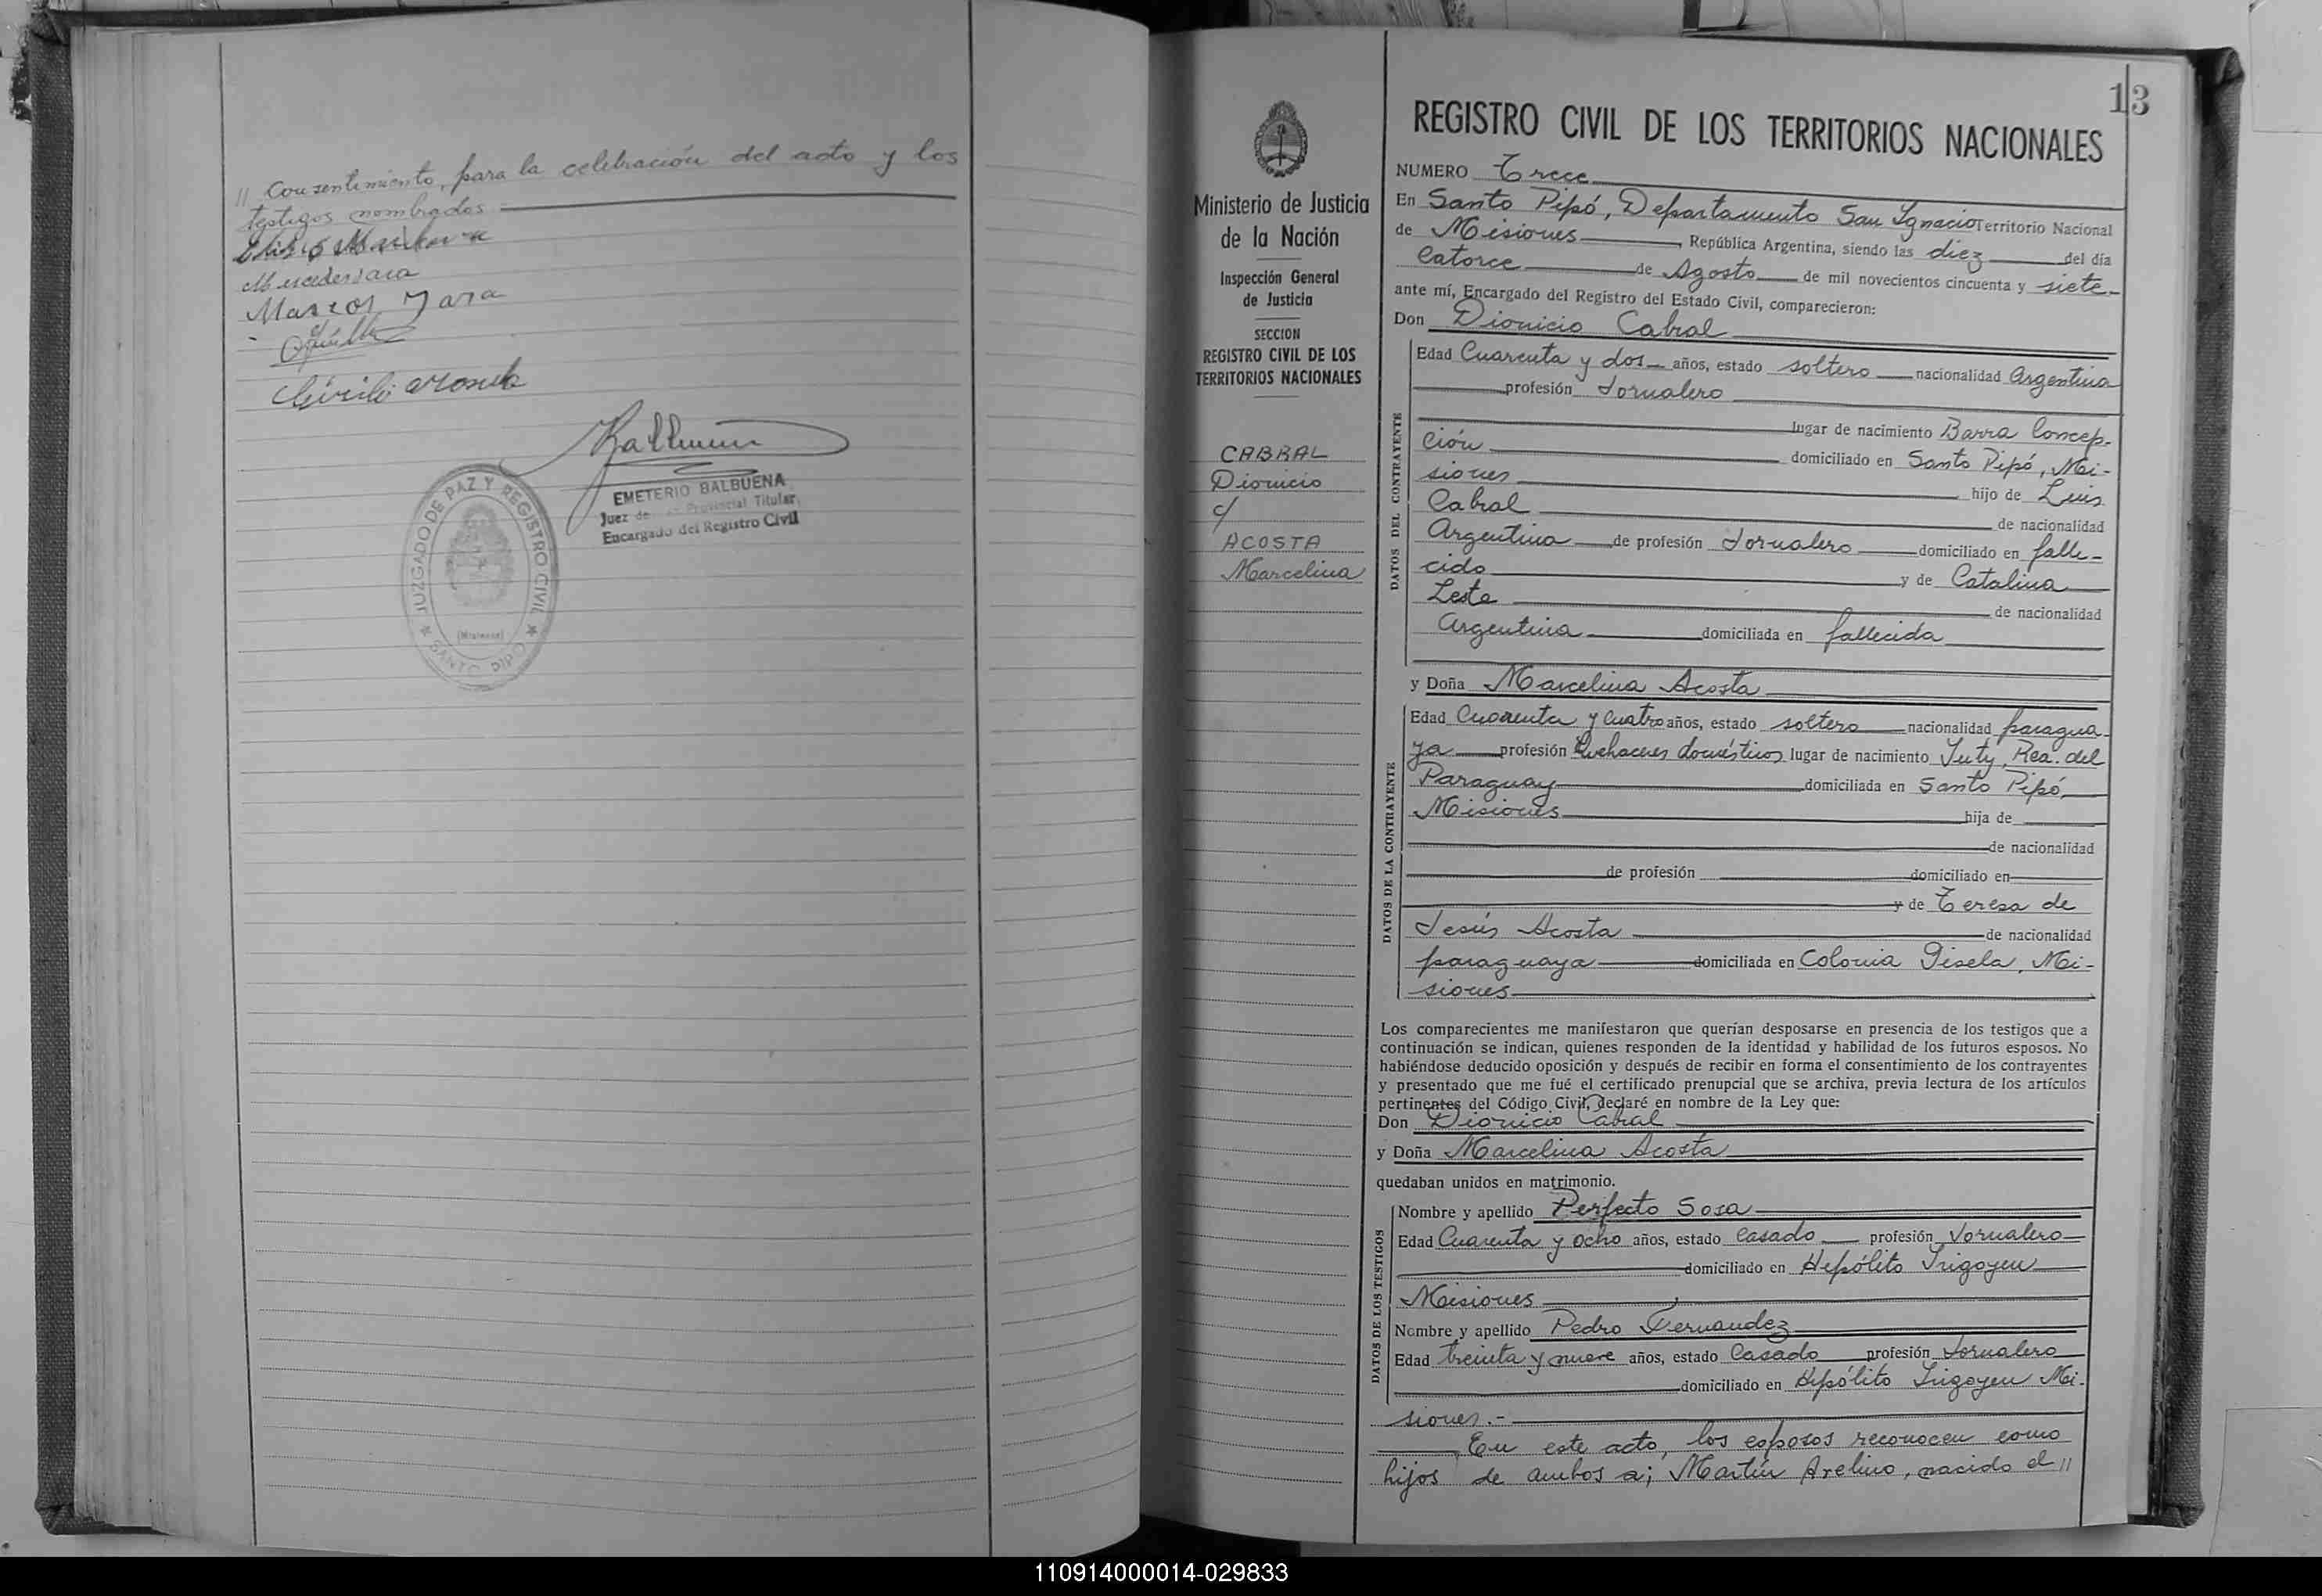 // Consentimiento, para la celebración del acto y los
testigos nombrados
Mercedes Jara
Marcos Jara
EMETERIO BALBUENA
Juez de Provincial Titular
Encargado del Registro Civil
JUZGADO DE PAZ Y REGISTRO CIVIL
(Misiones)
SANTO PIPO
13
Ministerio de Justicia
de la Nación
Inspección General
de Justicia
SECCION
REGISTRO CIVIL DE LOS
TERRITORIOS NACIONALES
CABRAL
Dionicio
c/
ACOSTA
Marcelina
REGISTRO CIVIL DE LOS TERRITORIOS NACIONALES
NUMERO Trece
En Santo Pipó, Departamento San Ignacio Territorio Nacional
de Misiones, República Argentina, siendo las diez del día
Catorce de Agosto de mil novecientos cincuenta y siete-
ante mí, Encargado del Registro del Estado Civil, comparecieron:
Don Dionicio Cabral
DATOS DEL CONTRAYENTE
Edad Cuarenta y dos años, estado soltero nacionalidad Argentina
profesión Jornalero
lugar de nacimiento Barra Concep-
ción domiciliado en Santo Pipó, Mi-
siones hijo de Luis
Cabral de nacionalidad
Argentina de profesión Jornalero domiciliado en falle-
cido y de Catalina
Leste de nacionalidad
Argentina domiciliada en fallecida
y Doña Marcelina Acosta
DATOS DE LA CONTRAYENTE
Edad Cuarenta y cuatro años, estado soltera nacionalidad paragua-
ya profesión Quehaceres domésticos lugar de nacimiento Yuty, Rca. del
Paraguay domiciliada en Santo Pipó,
Misiones hija de
de nacionalidad
de profesión domiciliado en
y de Teresa de
Jesús Acosta de nacionalidad
paraguaya domiciliada en Colonia Gisela, Mi-
siones
Los comparecientes me manifestaron que querían desposarse en presencia de los testigos que a
continuación se indican, quienes responden de la identidad y habilidad de los futuros esposos. No
habiéndose deducido oposición y después de recibir en forma el consentimiento de los contrayentes
y presentado que me fué el certificado prenupcial que se archiva, previa lectura de los artículos
pertinentes del Código Civil, declaré en nombre de la Ley que:
Don Dionicio Cabral
y Doña Marcelina Acosta
quedaban unidos en matrimonio.
DATOS DE LOS TESTIGOS
Nombre y apellido Perfecto Sosa
Edad Cuarenta y ocho años, estado Casado profesión Jornalero
domiciliado en Hipólito Irigoyen
Misiones
Nombre y apellido Pedro Fernandez
Edad treinta y nueve años, estado Casado profesión Jornalero
domiciliado en Hipólito Irigoyen Mi-
siones.-
En este acto, los esposos reconocen como
hijos de ambos a; Martín Avelino, nacido el //
110914000014-029833